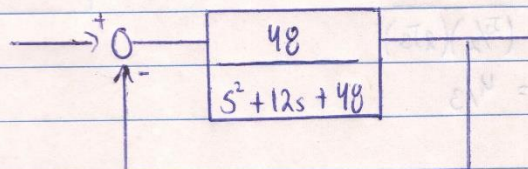 +
48
-
s² + 12s + 48